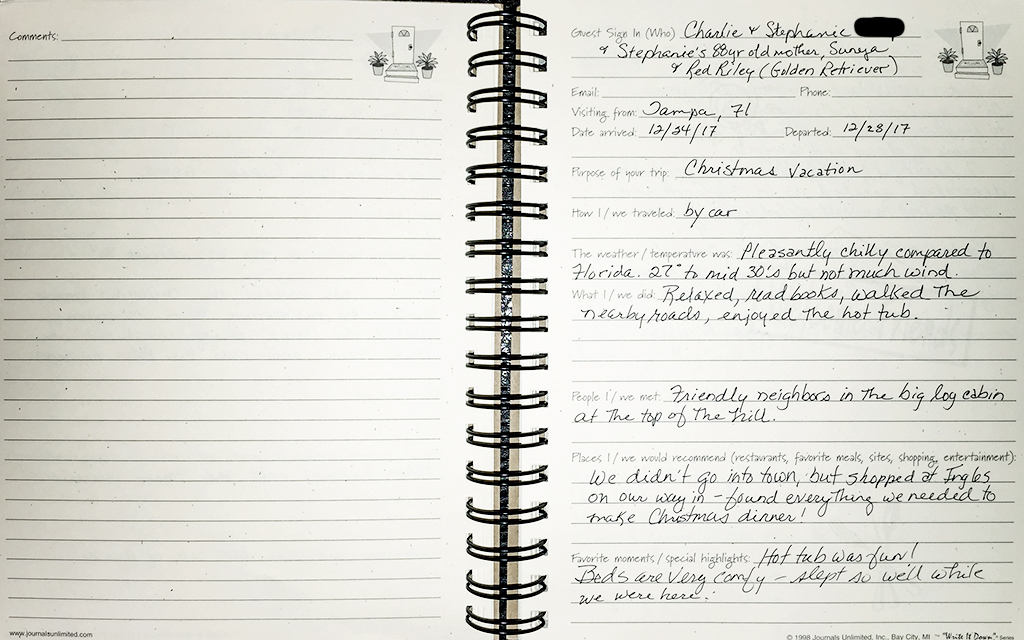 Comments:
www.journalsunlimited.com
Guest Sign In (Who) Charlie & Stephanie
& Stephanie's 88yr old mother, Suneya
& Red Riley (Golden Retriever)
Email: Phone:
Visiting from: Tampa, Fl
Date arrived: 12/24/17 Departed: 12/28/17
Purpose of your trip: Christmas Vacation
How I / we traveled: by car
The weather / temperature was: Pleasantly chilly compared to
Florida. 27° to mid 30's but not much wind.
What I / we did: Relaxed, read books, walked the
nearby roads, enjoyed the hot tub.
People I / we met: Friendly neighbors in the big log cabin
at the top of the hill.
Places I / we would recommend (restaurants, favorite meals, sites, shopping, entertainment):
We didn't go into town, but shopped at Ingles
on our way in - found everything we needed to
make Christmas dinner!
Favorite moments / special highlights: Hot tub was fun!
Beds are very comfy - slept so well while
we were here.
© 1998 Journals Unlimited, Inc., Bay City, MI ™ "Write It Down"® Series